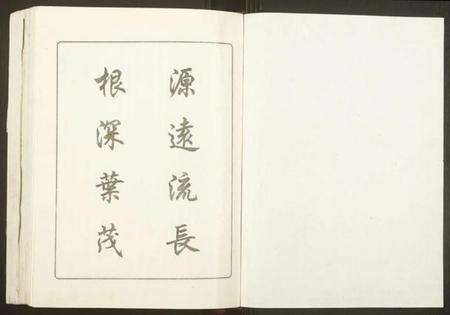 源遠流長
根深葉茂